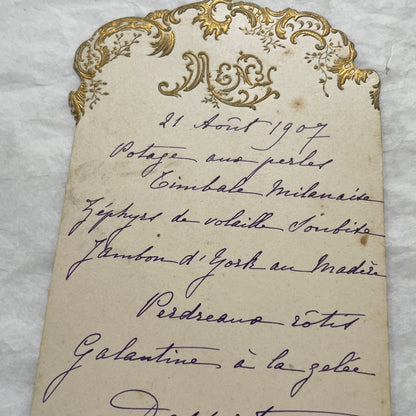 MENU
21 Août 1907
Potage aux perles
Timbale Milanaise
Zéphyrs de volaille Soubise
Jambon d'York au Madère
Perdreaux rôtis
Galantine à la gelée